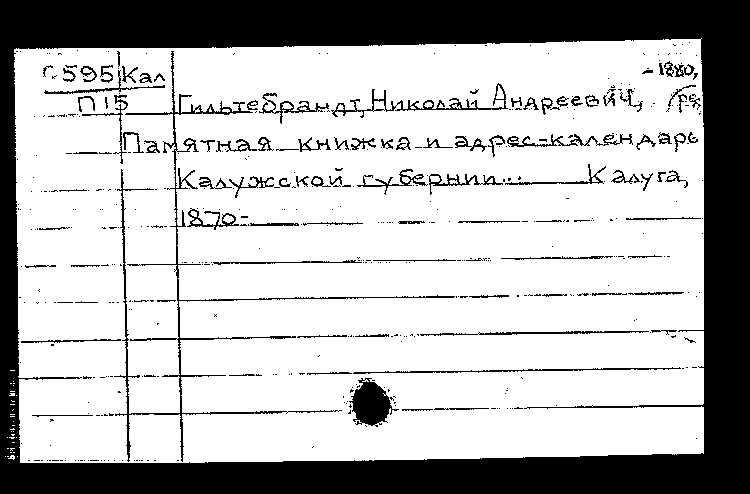 Г-595 Кал -1880,
П15 Гильтебрандт, Николай Андреевич,
Памятная книжка и адрес-календарь
Калужской губернии... Калуга,
1870-